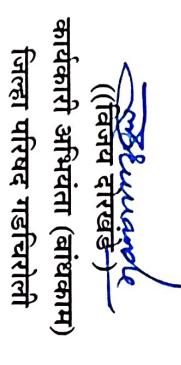 ((विनय दोरखंडे)
कार्यकारी अभियंता (बांधकाम)
जिल्हा परिषद गडचिरोली